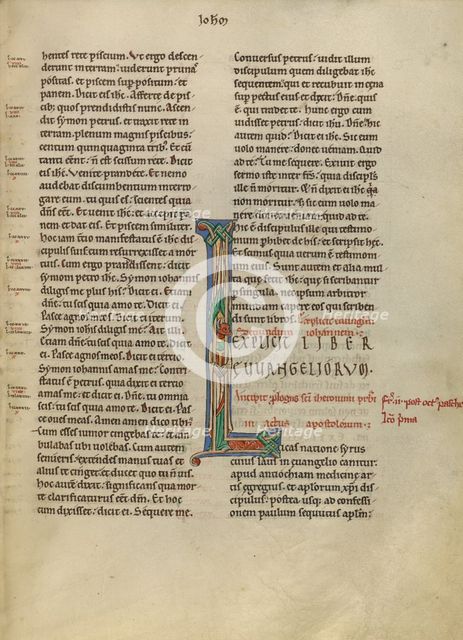 Iohan
hentes rete piscium. Ut ergo descen
derunt in terram: viderunt prunas
positas. et piscem sup positum: et
panem. Dicit eis ihc. Afferte de pis
cib; quos prendidistis nunc. Ascen
dit symon petrus. et traxit rete in
terram. plenum magnis piscibus:
centum quinquaginta trib;. Et cū
tanti eēnt: n̄ est scissum rete. Dicit
eis ihc. Venite prandete. Et nemo
audebat discumbentium interro
gare eum. tu quis es: scientes quia
dn̄s est. Et venit ihc: et accepit
nem et dat eis. Et piscem similiter.
Hoc iam tcio manifestatus ē ihc dis
cipulis suis cum resurrexisset a mor
tuis. Cum ergo prandissent: dicit
symoni petro ihc. Symon iohannis
diligis me plus his. Dicit ei. Etiam
dn̄e: tu scis quia amo te. Dicit ei.
Pasce agnos meos. Dicit ei iterum.
Symon iohis diligis me. Ait illi.
Etiam dn̄e: tu scis quia amo te. Dicit
ei. Pasce agnos meos. Dicit ei tercio.
Symon iohannis amas me. Contri
status ē petrus. quia dixit ei tercio.
amas me: et dicit ei. Dn̄e. tu omnia
scis: tu scis quia amo te. Dicit ei. Pas
ce oves meas. Amen amen dico tibi.
Cum esses iunior cingebas te. et am
bulabas ubi volebas. Cum autem
senueris. extendes manus tuas et
alius te cinget. et ducet quo tu n̄ vis.
Hoc autē dixit: significans qua mor
te clarificaturus eēt dm̄. Et hoc
cum dixisset: dicit ei. Sequere me.
Conversus petrus: vidit illum
discipulum quem diligebat ihc
sequentem. qui et recubuit in cena
sup pectus eius et dixit. Dn̄e: quis
ē qui tradet te. Hunc ergo cum
vidisset petrus: dixit ihu. Dn̄e. hic
autem quid. Dicit ei ihc. Sic eum
volo manere: donec veniam. Quid
ad te. Tu me sequere. Exivit ergo
sermo iste inter frs. quia discipls
ille n̄ moritur. Et n̄ dixit ei ihc quia
non moritur: sic eum volo ma
nere donec veniam. quid ad te.
Hic ē discipulus ille qui testimo
nium phibet de his: et scripsit hec.
Et scimus quia verum ē testimo
nium eius. Sunt autem et alia mul
ta que fecit ihc: que si scribantur
singula. nec ipsum arbitror
mundum capere eos qui scriben
di sunt libros. Explicit evangliū
Secundum iohannem.
EXPLICIT LIBER
EVVANGELIORVM.
Incipit plogus sci iheronimi prbi
in actus apostolorum.
Lucas natione syrus
cuius laus in evangelio canitur.
apud antiochiam medicine ar
tis egregius. et aplorum xpi dis
cipulus: postea usq; ad confessi
onem paulum sequutus aplm: